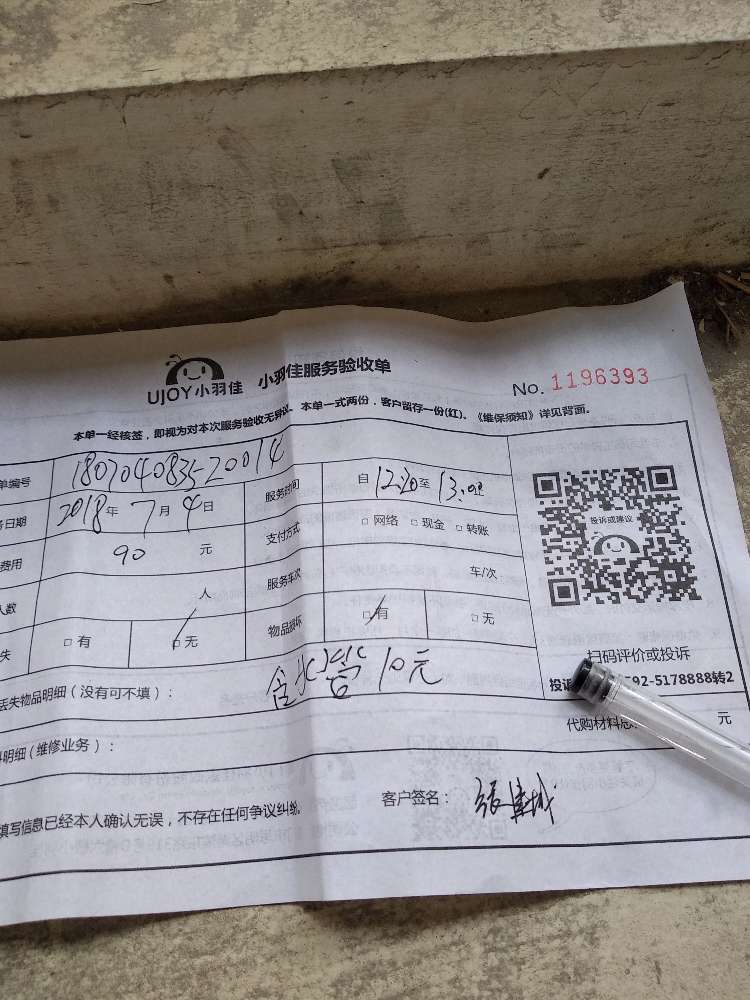 UJOY小羽佳 小羽佳服务验收单
No. 1196393
本单一经核签，即视为对本次服务验收无异议。本单一式两份，客户留存一份(红)。《维保须知》详见背面。
单编号 180704083520014 服务时间 自12:20至13:00
务日期 2018年7月4日 支付方式 □网络 □现金 □转账
费用 90 元 服务车次 车/次
人数 人 物品损坏 □有 □无
失 □有 □无
投诉或建议
扫码评价或投诉
投诉 592-5178888转2
丢失物品明细（没有可不填）： 含水管10元
代购材料总 元
料明细（维修业务）：
填写信息已经本人确认无误，不存在任何争议纠纷。 客户签名：